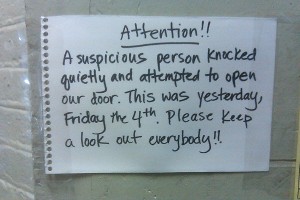 Attention!!
A suspicious person knocked
quietly and attempted to open
our door. This was yesterday,
Friday the 4th. Please keep
a look out everybody!!